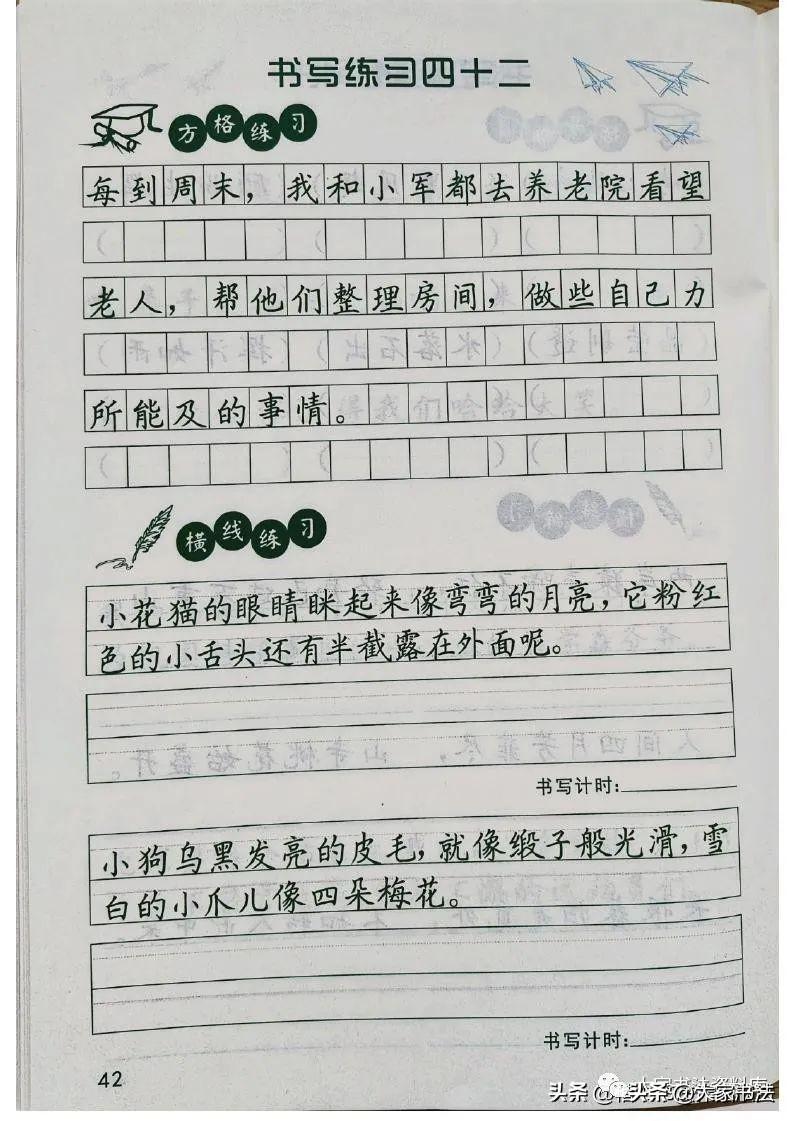 书写练习四十二
方格练习
每到周末，我和小军都去养老院看望
老人，帮他们整理房间，做些自己力
所能及的事情。
横线练习
小花猫的眼睛眯起来像弯弯的月亮，它粉红
色的小舌头还有半截露在外面呢。
书写计时：
小狗乌黑发亮的皮毛，就像缎子般光滑，雪
白的小爪儿像四朵梅花。
书写计时：
42
头条@大家书法